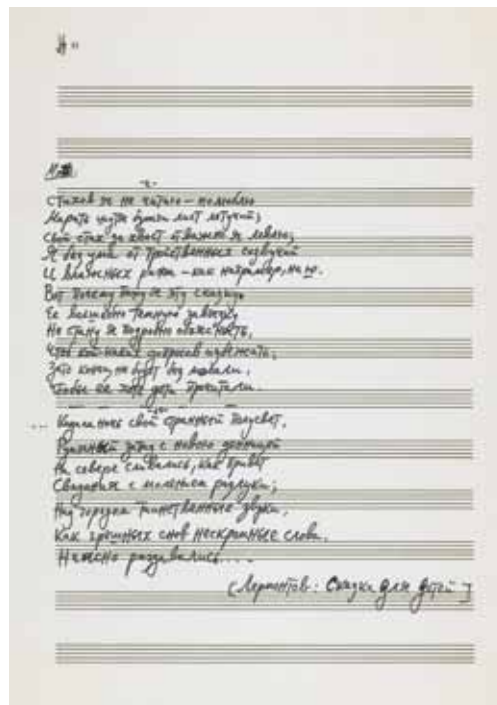 Стихов я не читаю – но люблю
Марать шутя бумаги лист летучий;
Свой стих за хвост отважно я ловлю;
Я без ума от тройственных созвучий
И влажных рифм – как например, на ю.
Вот почему пишу я эту сказку.
Ее волшебно темную завязку
Не стану я подробно объяснять,
Чтоб кой-каких допросов избежать;
Зато конец не будет без морали,
Чтобы ее хоть дети прочитали.
... Кидала ночь свой странный полусвет,
Румяный запад с новою денницей
На севере сливались, как привет
Свидания с молением разлуки;
Над городом таинственные звуки,
Как грешных снов нескромные слова,
Неясно раздавались....
[Лермонтов: Сказка для детей]